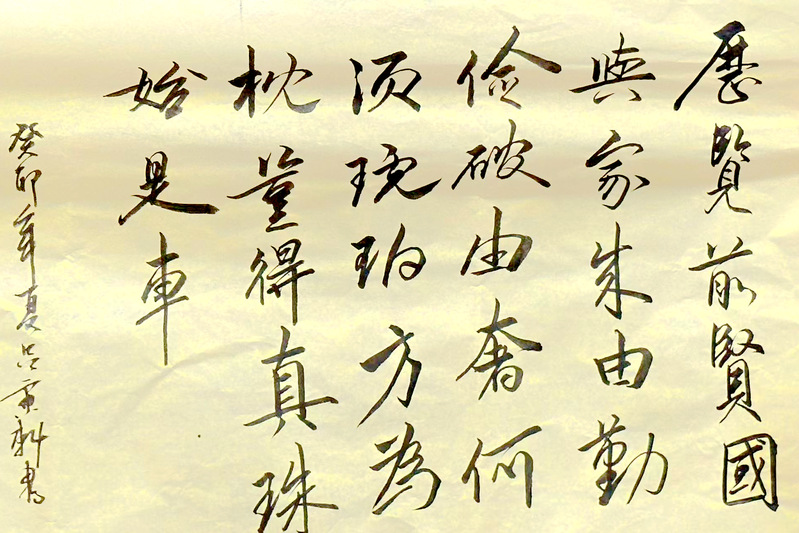 歷覽前賢國
與家成由勤
俭破由奢何
须琥珀方為
枕豈得真珠
始是車
癸卯年夏吕书